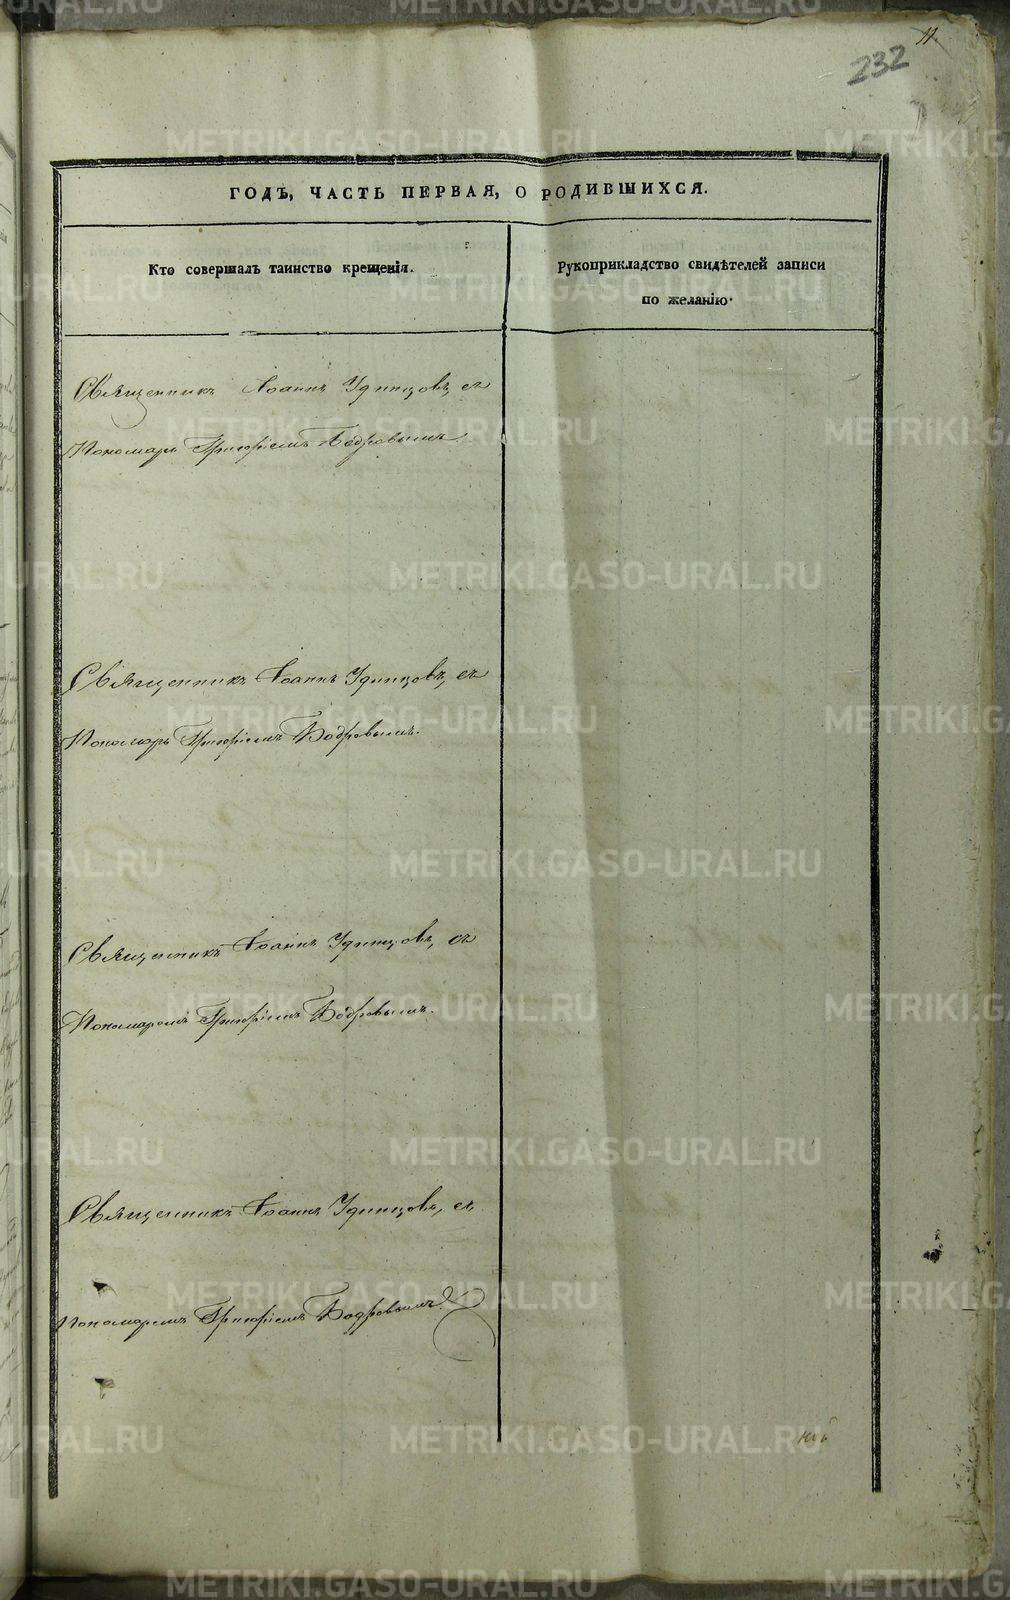 11
232
ГОДЪ, ЧАСТЬ ПЕРВАЯ, О РОДИВШИХСЯ.
Кто совершалъ таинство крещенія.
Рукоприкладство свидѣтелей записи
по желанію.
Священникъ Іоаннъ Удинцовъ, съ
Пономарь Григоріемъ Бодровымъ.
Священникъ Іоаннъ Удинцовъ, съ
Пономарь Григоріемъ Бодровымъ.
Священникъ Іоаннъ Удинцовъ, съ
Пономаремъ Григоріемъ Бодровымъ.
Священникъ Іоаннъ Удинцовъ, съ
Пономаремъ Григоріемъ Бодровымъ.
METRIKI.GASO-URAL.RU